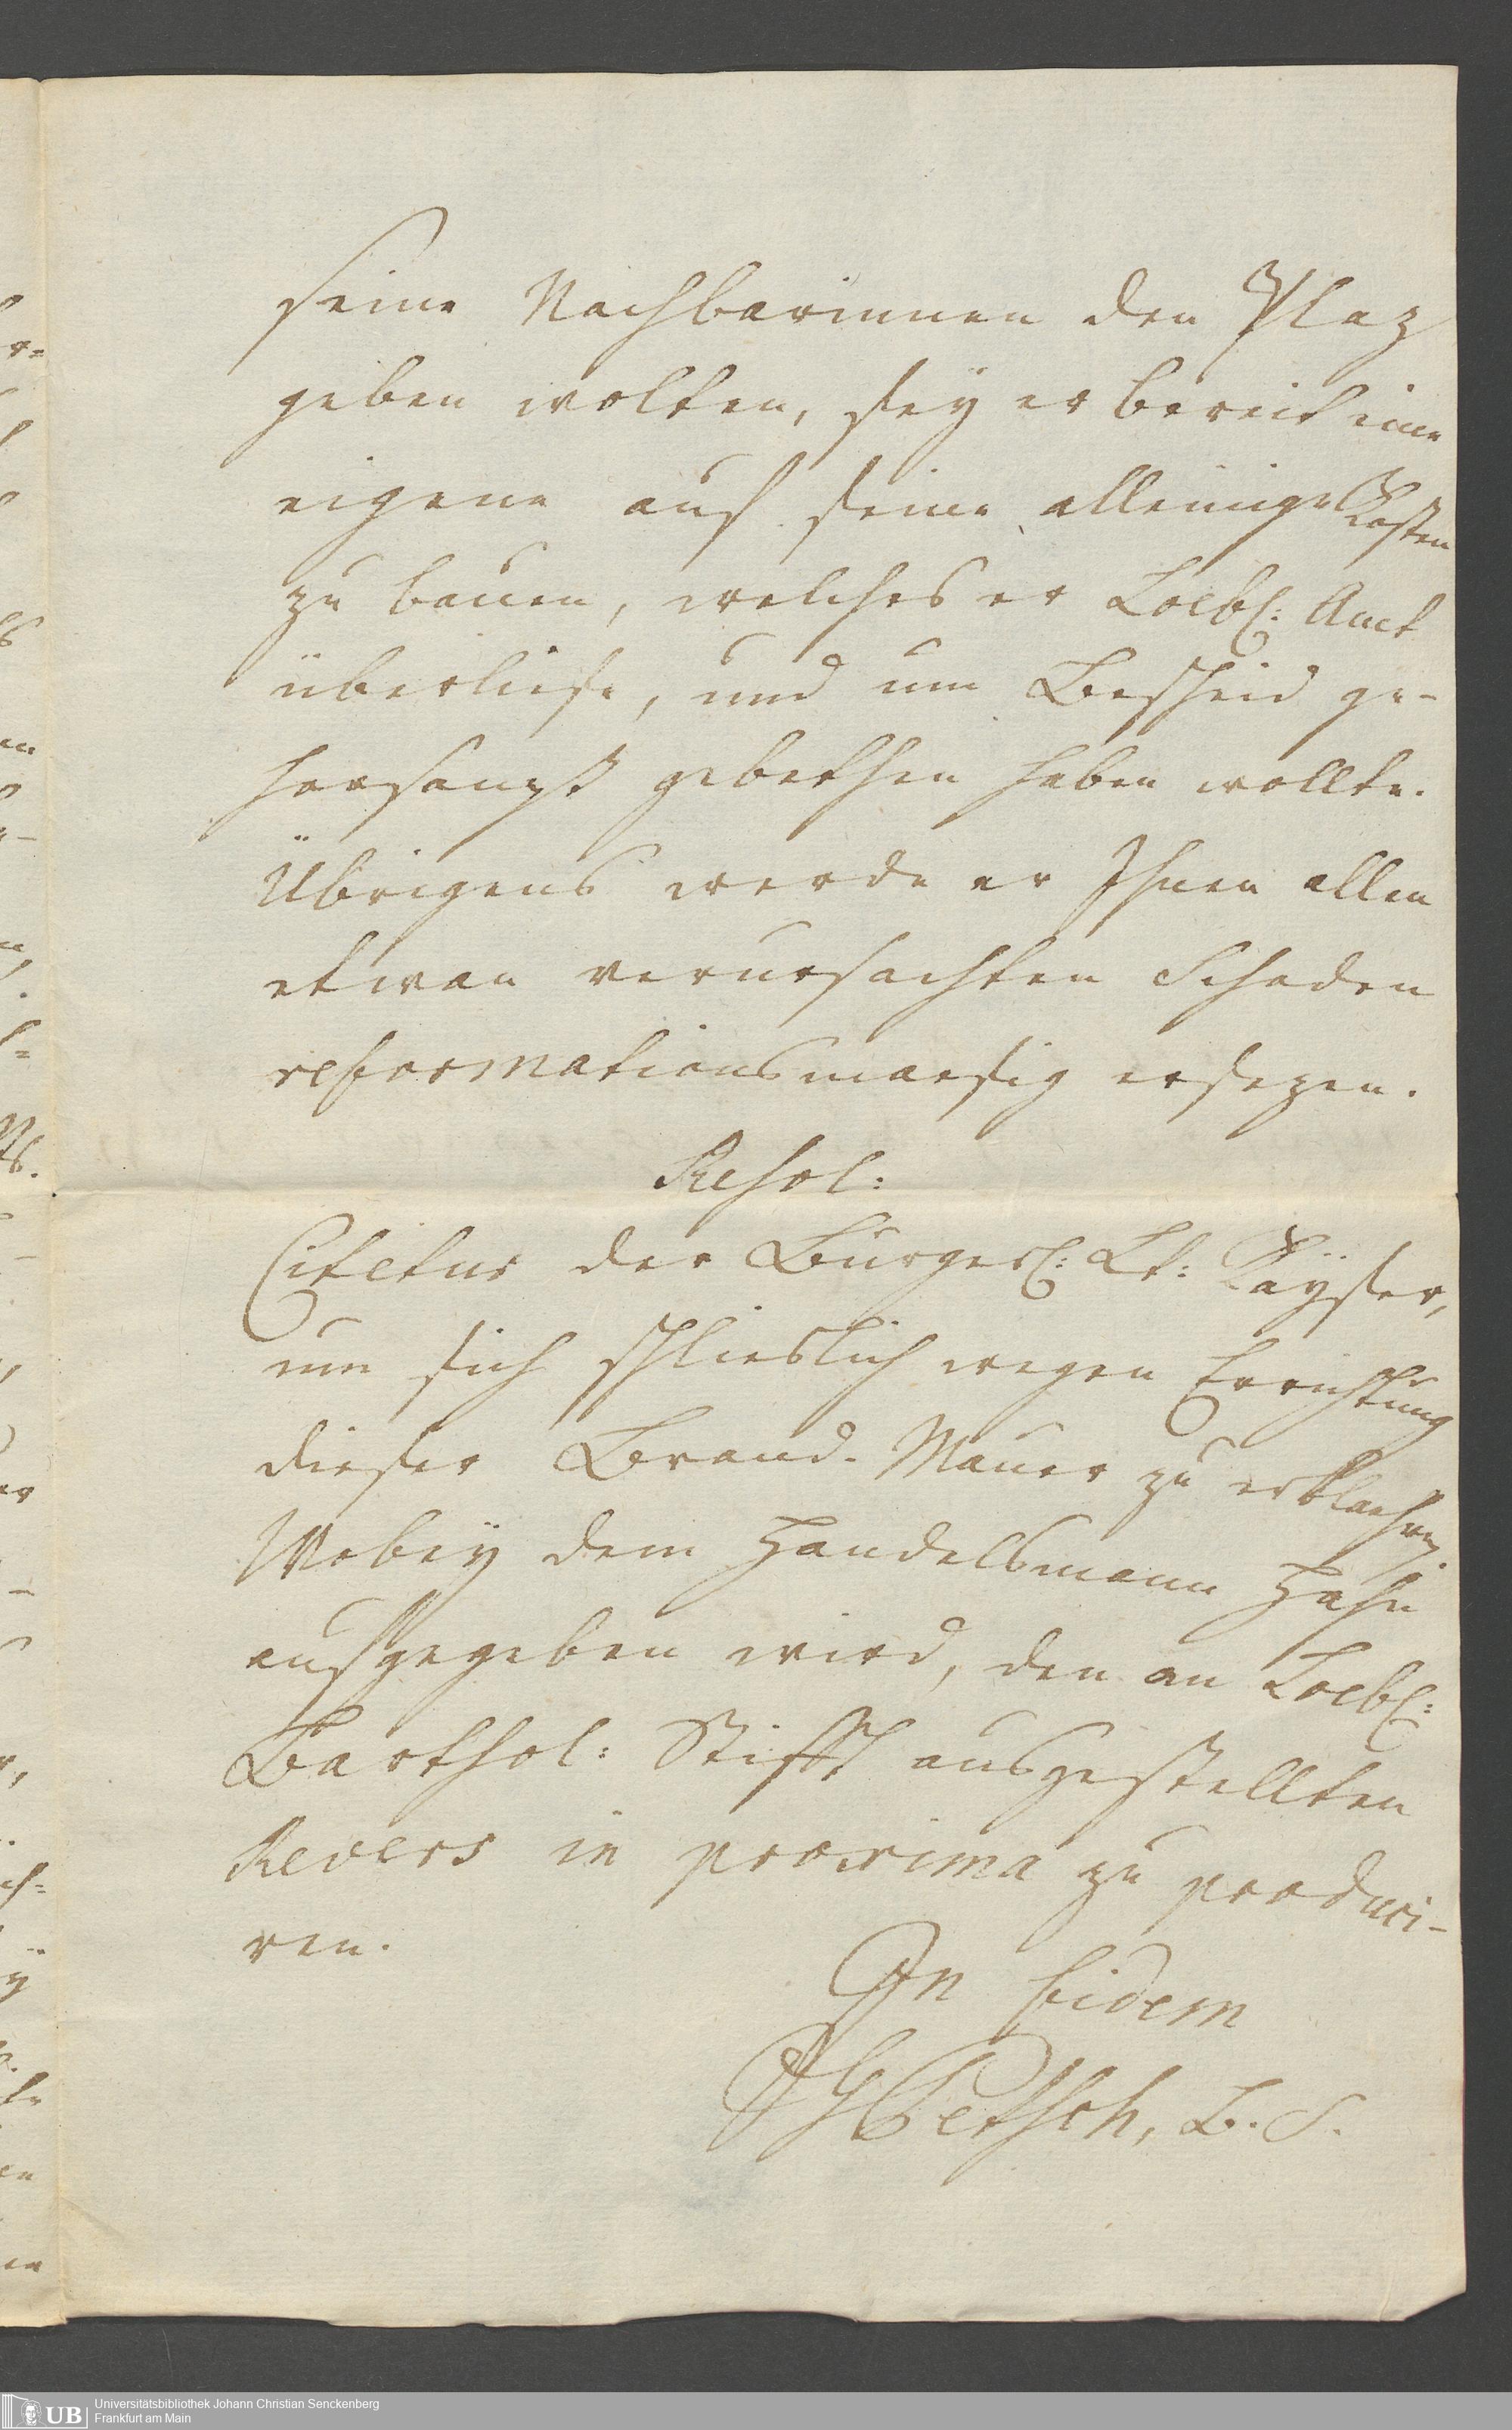 seine Nachbarinnen den Plaz
geben wolten, seÿ er bereit eine
eigene auf seine alleinige Kosten
zu bauen, welches er Loebl: Amt
überliese, und um Bescheid ge-
horsamst gebethen haben wollte.
Übrigens werde er Ihnen allen
etwan verursachten Schaden
reformationsmaesig ersezen.
Resol:
Citetur der Bürgerl: Lt: Kaÿser,
um sich schlieslich wegen Errichtung
dieser Brand-Mauer zu erklaehren.
Wobeÿ dem Handelsmann Hahn
aufgegeben wird, den an Loebl:
Barthol: Stifft ausgestellten
Revers in proxima zu produci-
ren.
In fidem
Petsch, B. S.
Universitätsbibliothek Johann Christian Senckenberg
Frankfurt am Main
UB